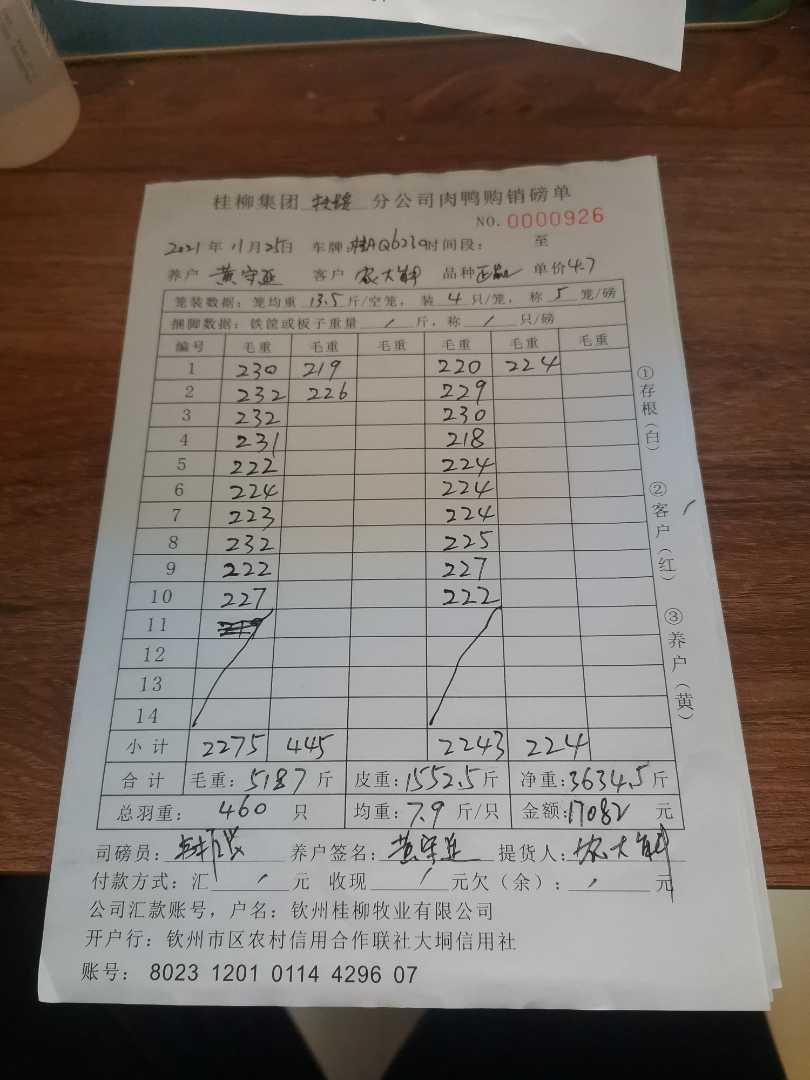 桂柳集团 扶绥 分公司肉鸭购销磅单
NO. 0000926
2021年11月25日 车牌:桂AQ6239时间段: 至
养户 黄守延 客户 农大 品种 单价4.7
笼装数据:笼均重 13.5 斤/空笼,装 4 只/笼,称 5 笼/磅
捆脚数据:铁筐或板子重量 / 斤,称 / 只/磅
编号 毛重 毛重 毛重 毛重 毛重 毛重
1 230 219 220 224
2 232 226 229
3 232 230
4 231 218
5 222 224
6 224 224
7 223 224
8 232 225
9 222 227
10 227 222
11
12
13
14
小计 2275 445 2243 224
合计 毛重:5187斤 皮重:1552.5斤 净重:3634.5斤
总羽重: 460 只 均重:7.9 斤/只 金额:17082 元
司磅员: 养户签名:黄守延 提货人:农大
付款方式:汇 / 元 收现 / 元欠(余):/ 元
公司汇款账号,户名:钦州桂柳牧业有限公司
开户行:钦州市区农村信用合作联社大垌信用社
账号: 8023 1201 0114 4296 07
①存根(白) ②客户(红) ③养户(黄)